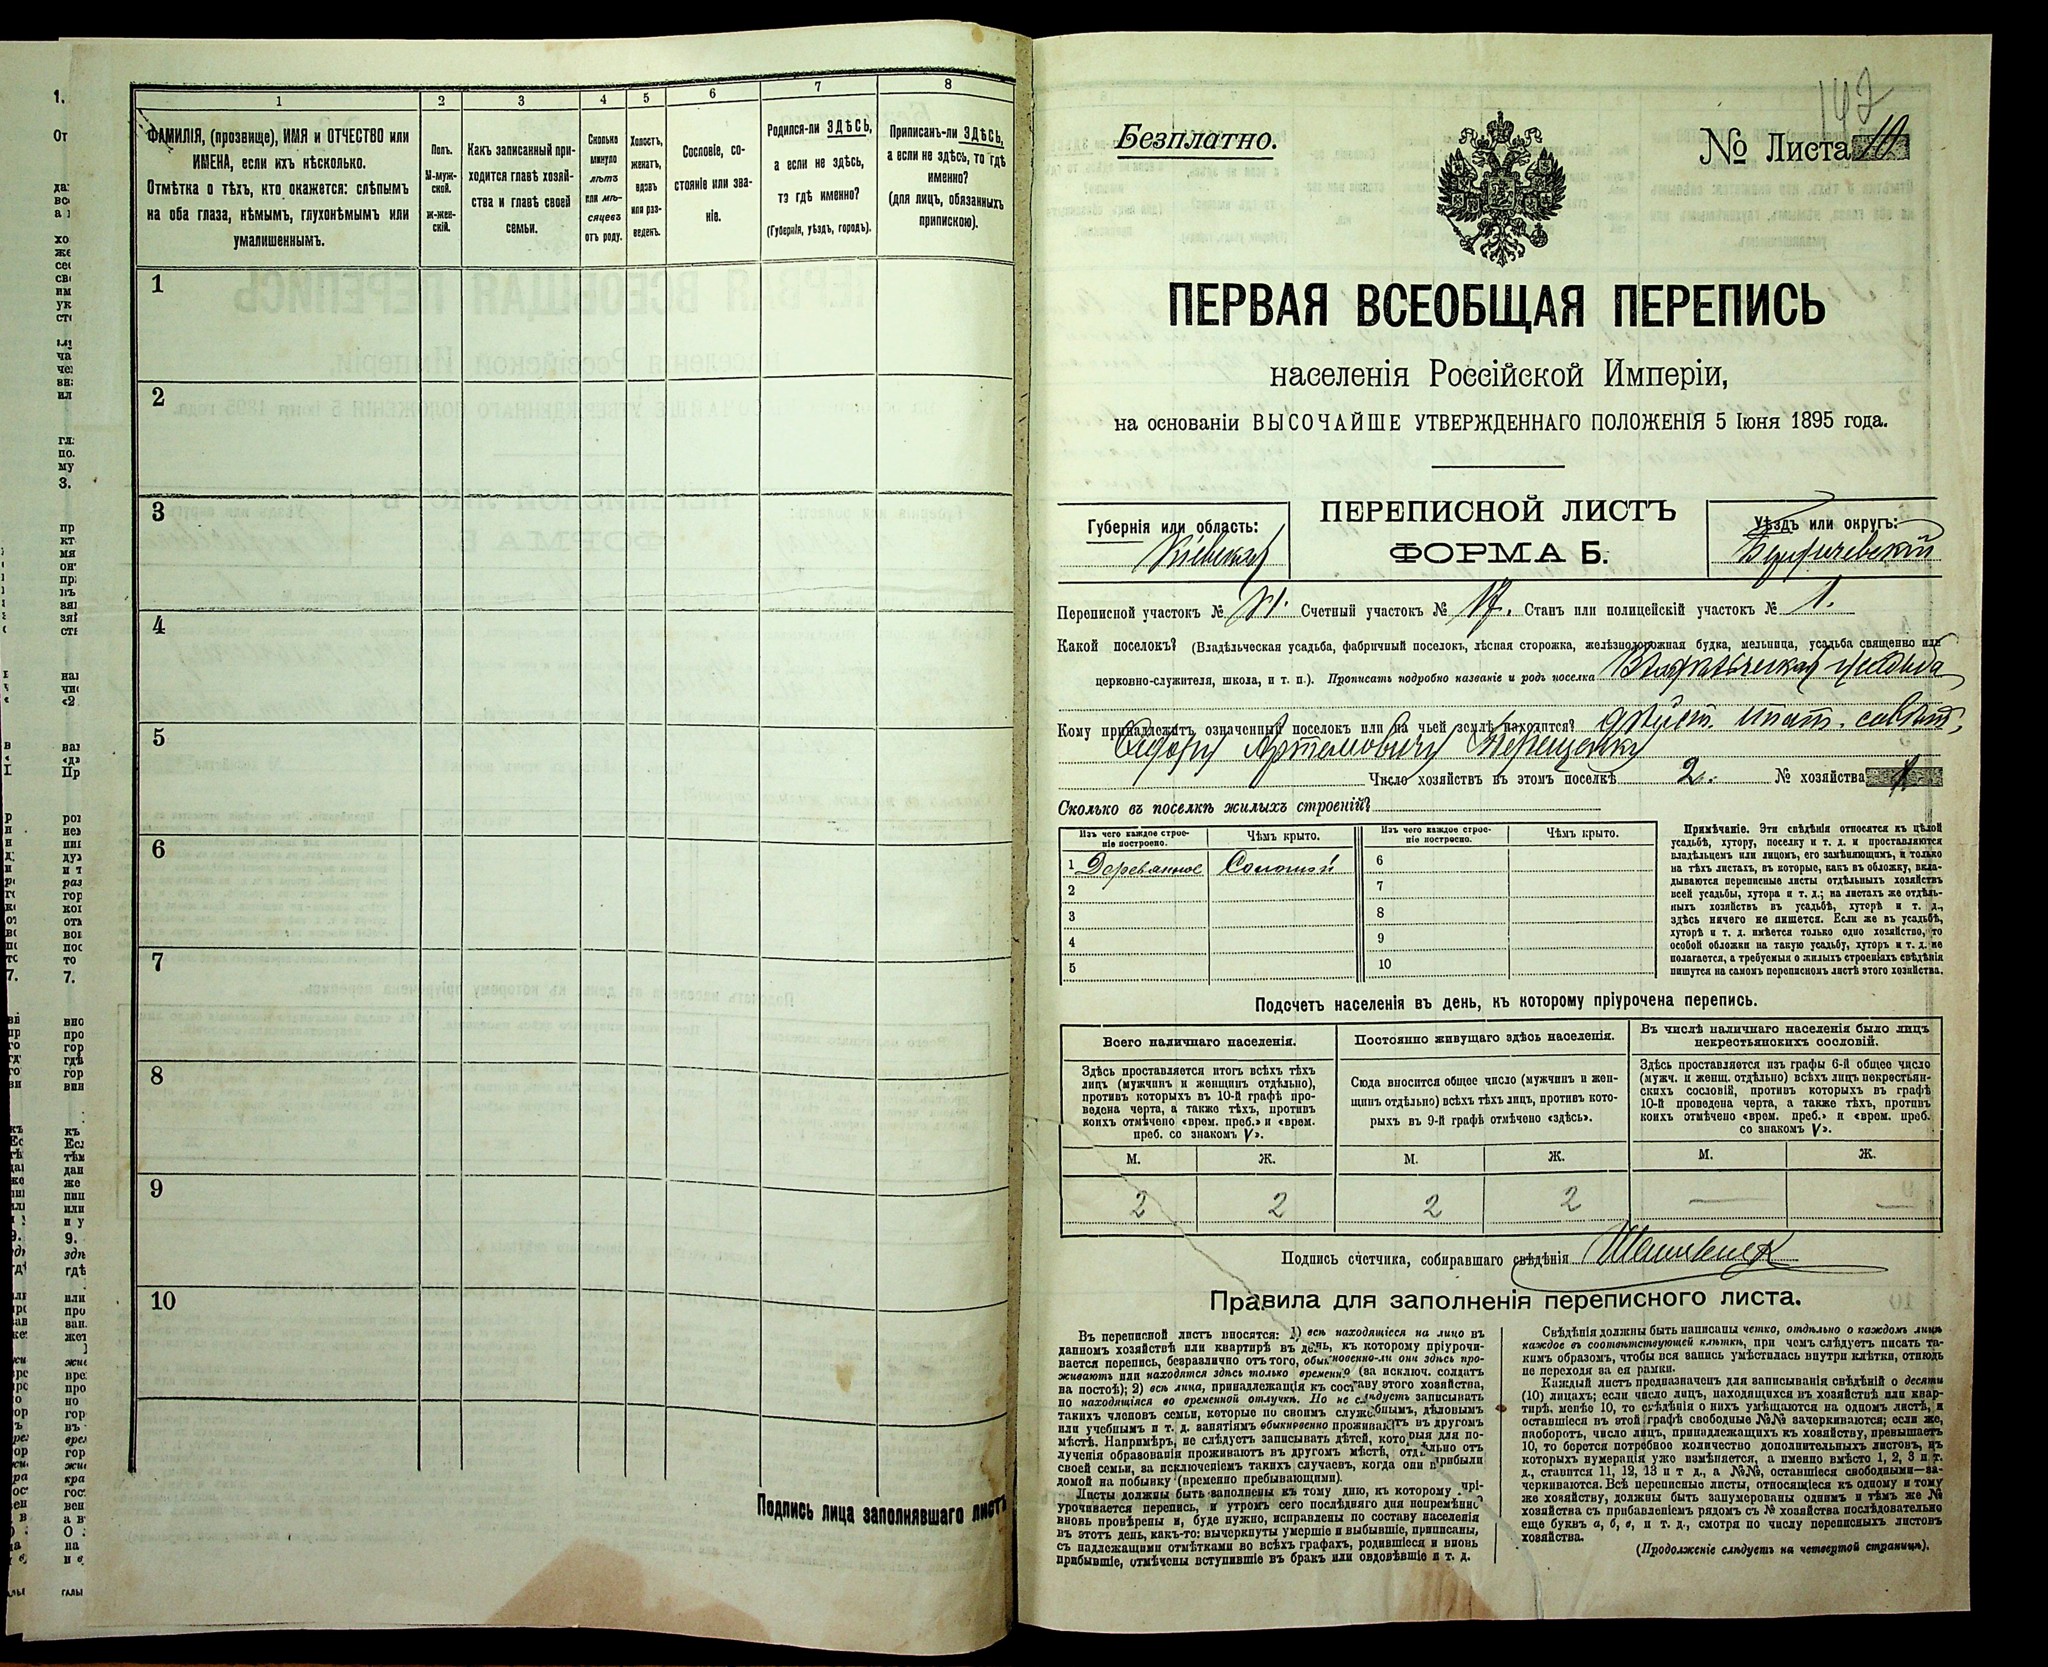 1 2 3 4 5 6 7 8
ФАМИЛІЯ, (прозвище), ИМЯ и ОТЧЕСТВО или
ИМЕНА, если ихъ нѣсколько.
Отмѣтка о тѣхъ, кто окажется: слѣпымъ
на оба глаза, нѣмымъ, глухонѣмымъ или
умалишеннымъ.
Полъ.
М-муж-
ской.
ж-жен-
скій.
Какъ записанный при-
ходится главѣ хозяй-
ства и главѣ своей
семьи.
Сколько
минуло
лѣтъ
или мѣ-
сяцевъ
отъ роду.
Холостъ,
женатъ,
вдовъ
или раз-
веденъ.
Сословіе, со-
стояніе или зва-
ніе.
Родился-ли ЗДѢСЬ,
а если не здѣсь,
то гдѣ именно?
(Губернія, уѣздъ, городъ).
Приписанъ-ли ЗДѢСЬ,
а если не здѣсь, то гдѣ
именно?
(для лицъ, обязанныхъ
припискою).
1
2
3
4
5
6
7
8
9
10
Подпись лица заполнявшаго листъ
147
Безплатно.
№ Листа 10
ПЕРВАЯ ВСЕОБЩАЯ ПЕРЕПИСЬ
населенія Россійской Имперіи,
на основаніи ВЫСОЧАЙШЕ УТВЕРЖДЕННАГО ПОЛОЖЕНІЯ 5 Іюня 1895 года.
Губернія или область:
Кіевская
ПЕРЕПИСНОЙ ЛИСТЪ
ФОРМА Б.
Уѣздъ или округъ:
Бердичевскій
Переписной участокъ № Счетный участокъ № 17. Станъ или полицейскій участокъ № 1.
Какой поселокъ? (Владѣльческая усадьба, фабричный поселокъ, лѣсная сторожка, желѣзнодорожная будка, мельница, усадьба священно или
церковно-служителя, школа, и т. п.). Прописать подробно названіе и родъ поселка Владѣльческая усадьба
Кому принадлежитъ означенный поселокъ или на чьей землѣ находится? дѣйст. стат. совѣт.
Ѳедору Артемовичу Терещенку
Число хозяйствъ въ этомъ поселкѣ 2. № хозяйства
Сколько въ поселкѣ жилыхъ строеній?
Изъ чего каждое строе-
ніе построено.
Чѣмъ крыто.
Изъ чего каждое строе-
ніе построено.
Чѣмъ крыто.
1 Деревянное Соломой 6
2 7
3 8
4 9
5 10
Примѣчаніе. Эти свѣдѣнія относятся къ цѣлой
усадьбѣ, хутору, поселку и т. д. и проставляются
владѣльцемъ или лицомъ, его замѣняющимъ, и только
на тѣхъ листахъ, въ которые, какъ въ обложку, вкла-
дываются переписные листы отдѣльныхъ хозяйствъ
всей усадьбы, хутора и т. д.; на листахъ же отдѣль-
ныхъ хозяйствъ въ усадьбѣ, хуторѣ и т. д.,
здѣсь ничего не пишется. Если же въ усадьбѣ,
хуторѣ и т. д. имѣется только одно хозяйство, то
особой обложки на такую усадьбу, хуторъ и т. д. не
полагается, а требуемыя о жилыхъ строеніяхъ свѣдѣнія
пишутся на самомъ переписномъ листѣ этого хозяйства.
Подсчетъ населенія въ день, къ которому пріурочена перепись.
Всего наличнаго населенія.
Здѣсь проставляется итогъ всѣхъ тѣхъ
лицъ (мужчинъ и женщинъ отдѣльно),
противъ которыхъ въ 10-й графѣ про-
ведена черта, а также тѣхъ, противъ
коихъ отмѣчено «врем. преб.» и «врем.
преб. со знакомъ V».
Постоянно живущаго здѣсь населенія.
Сюда вносится общее число (мужчинъ и жен-
щинъ отдѣльно) всѣхъ тѣхъ лицъ, противъ кото-
рыхъ въ 9-й графѣ отмѣчено «здѣсь».
Въ числѣ наличнаго населенія было лицъ
некрестьянскихъ сословій.
Здѣсь проставляется изъ графы 6-й общее число
(мужч. и женщ. отдѣльно) всѣхъ лицъ некрестьян-
скихъ сословій, противъ которыхъ въ графѣ
10-й проведена черта, а также тѣхъ, противъ
коихъ отмѣчено «врем. преб.» и «врем. преб.
со знакомъ V».
М. Ж. М. Ж. М. Ж.
2 2 2 2 — —
Подпись счетчика, собиравшаго свѣдѣнія
Правила для заполненія переписного листа.
Въ переписной листъ вносятся: 1) всѣ находящіеся на лицо въ
данномъ хозяйствѣ или квартирѣ въ день, къ которому пріурочи-
вается перепись, безразлично отъ того, обыкновенно-ли они здѣсь про-
живаютъ или находятся здѣсь только временно (за исключ. солдатъ
на постоѣ); 2) всѣ лица, принадлежащія къ составу этого хозяйства,
но находящіяся во временной отлучкѣ. Но не слѣдуетъ записывать
такихъ членовъ семьи, которые по своимъ служебнымъ, дѣловымъ
или учебнымъ и т. д. занятіямъ обыкновенно проживаютъ въ другомъ
мѣстѣ. Напримѣръ, не слѣдуетъ записывать дѣтей, которыя для по-
лученія образованія проживаютъ въ другомъ мѣстѣ, отдѣльно отъ
своей семьи, за исключеніемъ такихъ случаевъ, когда они прибыли
домой на побывку (временно пребывающими).
Листы должны быть заполнены къ тому дню, къ которому прі-
урочивается перепись, и утромъ сего послѣдняго дня непремѣнно
вновь провѣрены и, буде нужно, исправлены по составу населенія
въ этотъ день, какъ-то: вычеркнуты умершіе и выбывшіе, приписаны,
съ надлежащими отмѣтками во всѣхъ графахъ, родившіеся и вновь
прибывшіе, отмѣчены вступившіе въ бракъ или овдовѣвшіе и т. д.
Свѣдѣнія должны быть написаны четко, отдѣльно о каждомъ лицѣ
каждое въ соотвѣтствующей клѣткѣ, при чемъ слѣдуетъ писать та-
кимъ образомъ, чтобы вся запись умѣстилась внутри клѣтки, отнюдь
не переходя за ея рамки.
Каждый листъ предназначенъ для записыванія свѣдѣній о десяти
(10) лицахъ; если число лицъ, находящихся въ хозяйствѣ или квар-
тирѣ, менѣе 10, то свѣдѣнія о нихъ умѣщаются на одномъ листѣ, и
оставшіеся въ этой графѣ свободные №№ зачеркиваются; если же,
наоборотъ, число лицъ, принадлежащихъ къ хозяйству, превышаетъ
10, то берется потребное количество дополнительныхъ листовъ, въ
которыхъ нумерація уже измѣняется, а именно вмѣсто 1, 2, 3 и т.
д., ставится 11, 12, 13 и т д., а №№, оставшіеся свободными—за-
черкиваются. Всѣ переписные листы, относящіеся къ одному и тому
же хозяйству, должны быть занумерованы однимъ и тѣмъ же №
хозяйства съ прибавленіемъ рядомъ съ № хозяйства послѣдовательно
еще буквъ а, б, в, и т. д., смотря по числу переписныхъ листовъ
хозяйства.
(Продолженіе слѣдуетъ на четвертой страницѣ).